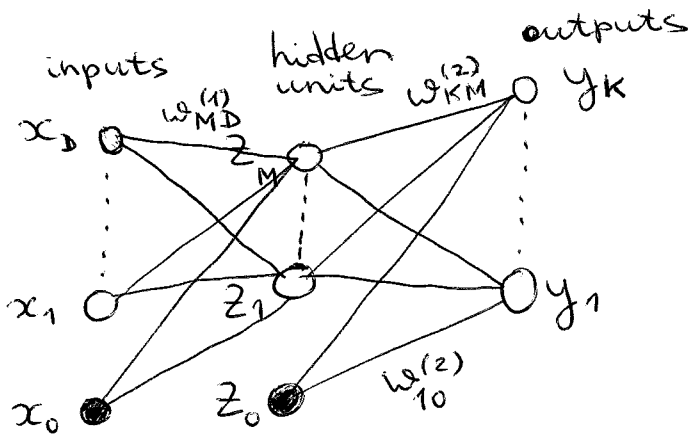 inputs
hidden
units
outputs
x_D
w_{MD}^{(1)}
z_M
w_{KM}^{(2)}
y_K
x_1
z_1
y_1
x_0
z_0
w_{10}^{(2)}